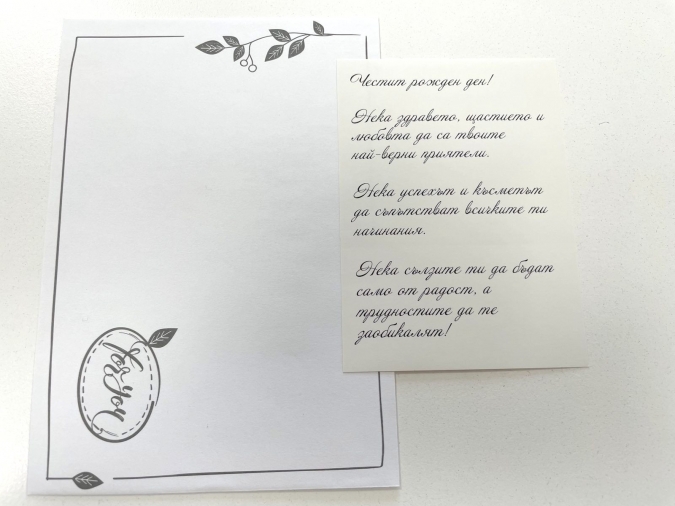 Честит рожден ден!
Нека здравето, щастието и
любовта да са твоите
най-верни приятели.
Нека успехът и късметът
да съпътстват всичките ти
начинания.
Нека сълзите ти да бъдат
само от радост, а
трудностите да те
заобикалят!
for you